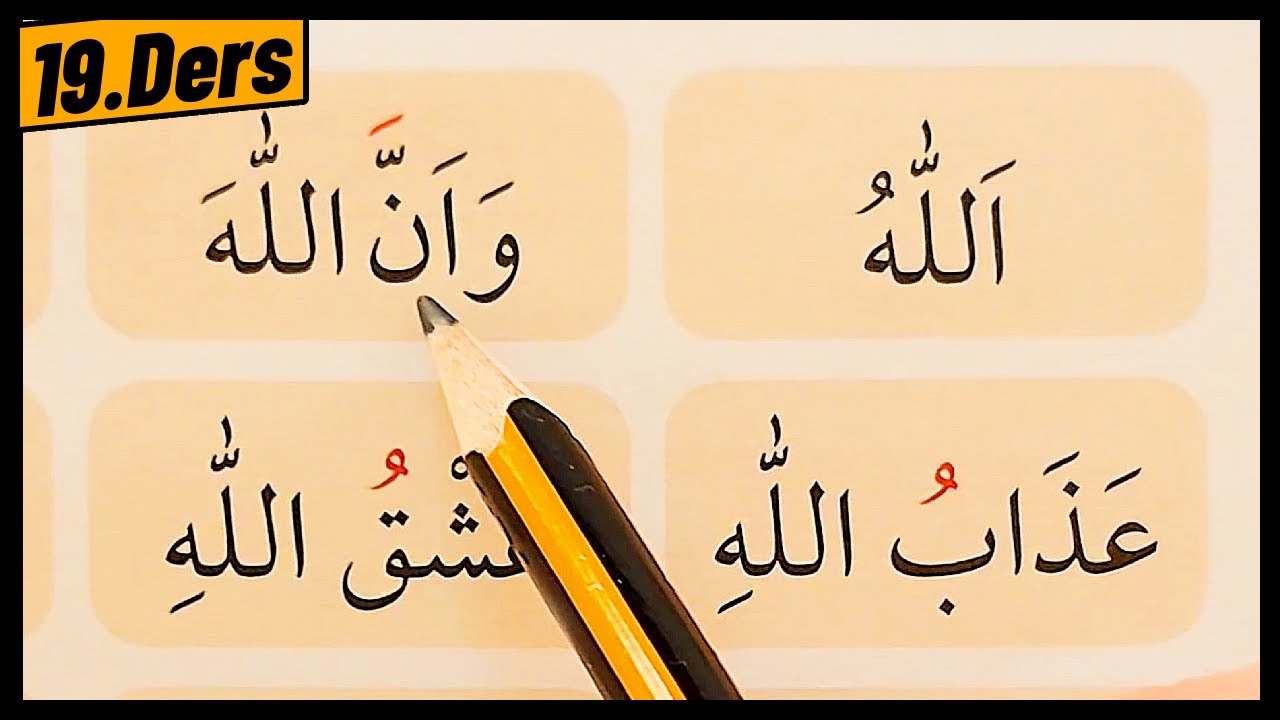 19.Ders
اَللّٰهُ
وَاَنَّ اللّٰهَ
عَذَابُ اللّٰهِ
اللّٰهِ